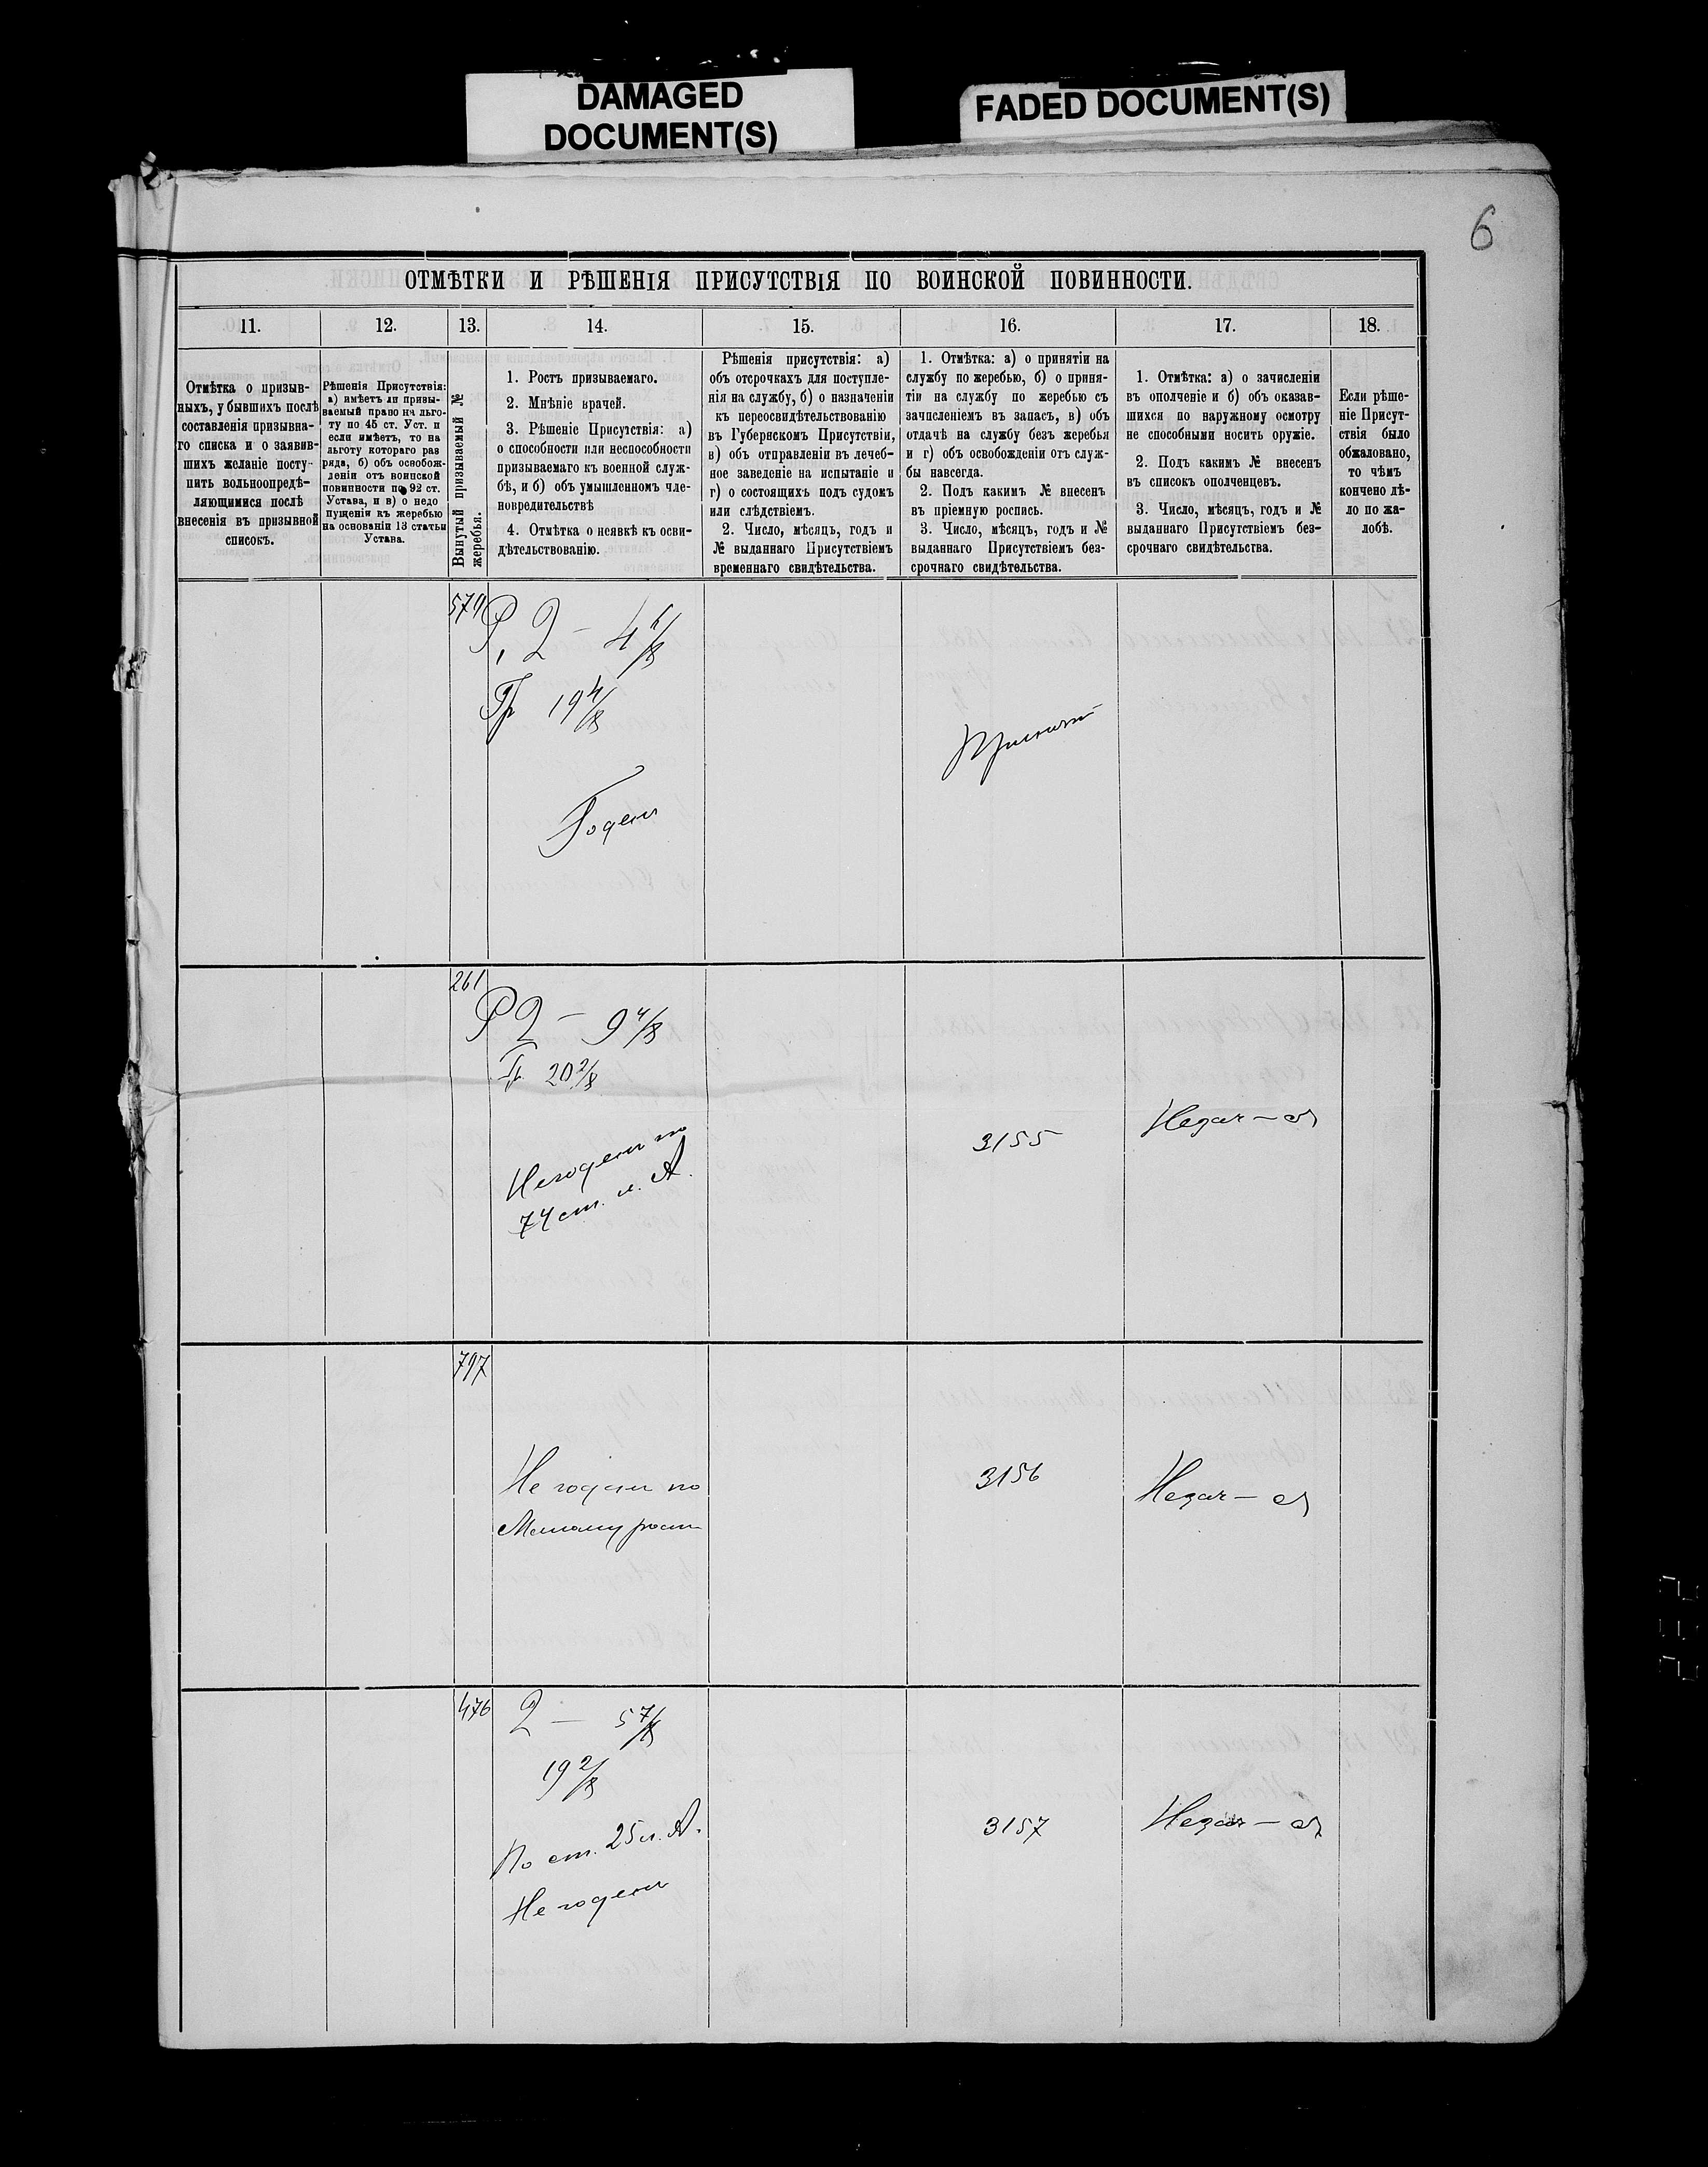 DAMAGED
DOCUMENT(S)
FADED DOCUMENT(S)
6
ОТМѢТКИ И РѢШЕНІЯ ПРИСУТСТВІЯ ПО ВОИНСКОЙ ПОВИННОСТИ.
11.
12.
13.
14.
15.
16.
17.
18.
Отмѣтка о призыв-
ныхъ, у бывшихъ послѣ
составленія призывна-
го списка и о заявив-
шихъ желаніе посту-
пить вольноопредѣ-
ляющимися послѣ
внесенія въ призывной
списокъ.
Рѣшенія Присутствія:
а) имѣетъ ли призы-
ваемый право нч льго-
ту по 45 ст. Уст. и
если имѣетъ, то на
льготу котораго раз
ряда, б) объ освобож-
деніи отъ воинской
повинности по 92 ст.
Устава, и в) о недо
пущеніи къ жеребью
на основаніи 13 статьи
Устава.
Вынутый призываемый №
жеребья.
1. Ростъ призываемаго.
2. Мнѣніе врачей.
3. Рѣшеніе Присутствія: а)
о способности или неспособности
призываемаго къ военной служ-
бѣ, и б) объ умышленномъ чле-
новредительствѣ
4. Отмѣтка о неявкѣ къ осви-
дѣтельствованію.
Рѣшенія присутствія: а)
объ отсрочкахъ для поступле-
нія на службу, б) о назначеніи
къ переосвидѣтельствованію
въ Губернскомъ Присутствіи,
в) объ отправленіи въ лечеб-
ное заведеніе на испытаніе и
г) о состоящихъ подъ судомъ
или слѣдствіемъ.
2. Число, мѣсяцъ, годъ и
№ выданнаго Присутствіемъ
временнаго свидѣтельства.
1. Отмѣтка: а) о принятіи на
службу по жеребью, б) о приня-
тіи на службу по жеребью съ
зачисленіемъ въ запасъ, в) объ
отдачѣ на службу безъ жеребья
и г) объ освобожденіи отъ служ-
бы навсегда.
2. Подъ какимъ № внесенъ
въ пріемную роспись.
3. Число, мѣсяцъ, годъ и №
выданнаго Присутствіемъ без-
срочнаго свидѣтельства.
1. Отмѣтка: а) о зачисленіи
въ ополченіе и б) объ оказав-
шихся по наружному осмотру
не способными носить оружіе.
2. Подъ какимъ № внесенъ
въ списокъ ополченцевъ.
3. Число, мѣсяцъ, годъ и №
выданнаго Присутствіемъ без-
срочнаго свидѣтельства.
Если рѣше-
ніе Присут-
ствія было
обжаловано,
то чѣмъ
кончено дѣ-
ло по жа-
лобѣ.
Р. 2 –
Гр 19 4/8
Принятъ
Годенъ
261
Р 2 – 9 4/8
Гр. 20 2/8
Негоденъ по
74 ст. л. А.
3155
797
Не годенъ по
Малому росту
3156
476
2 – 5 7/8
19 2/8
По ст. 25 л. А.
Не годенъ
3157